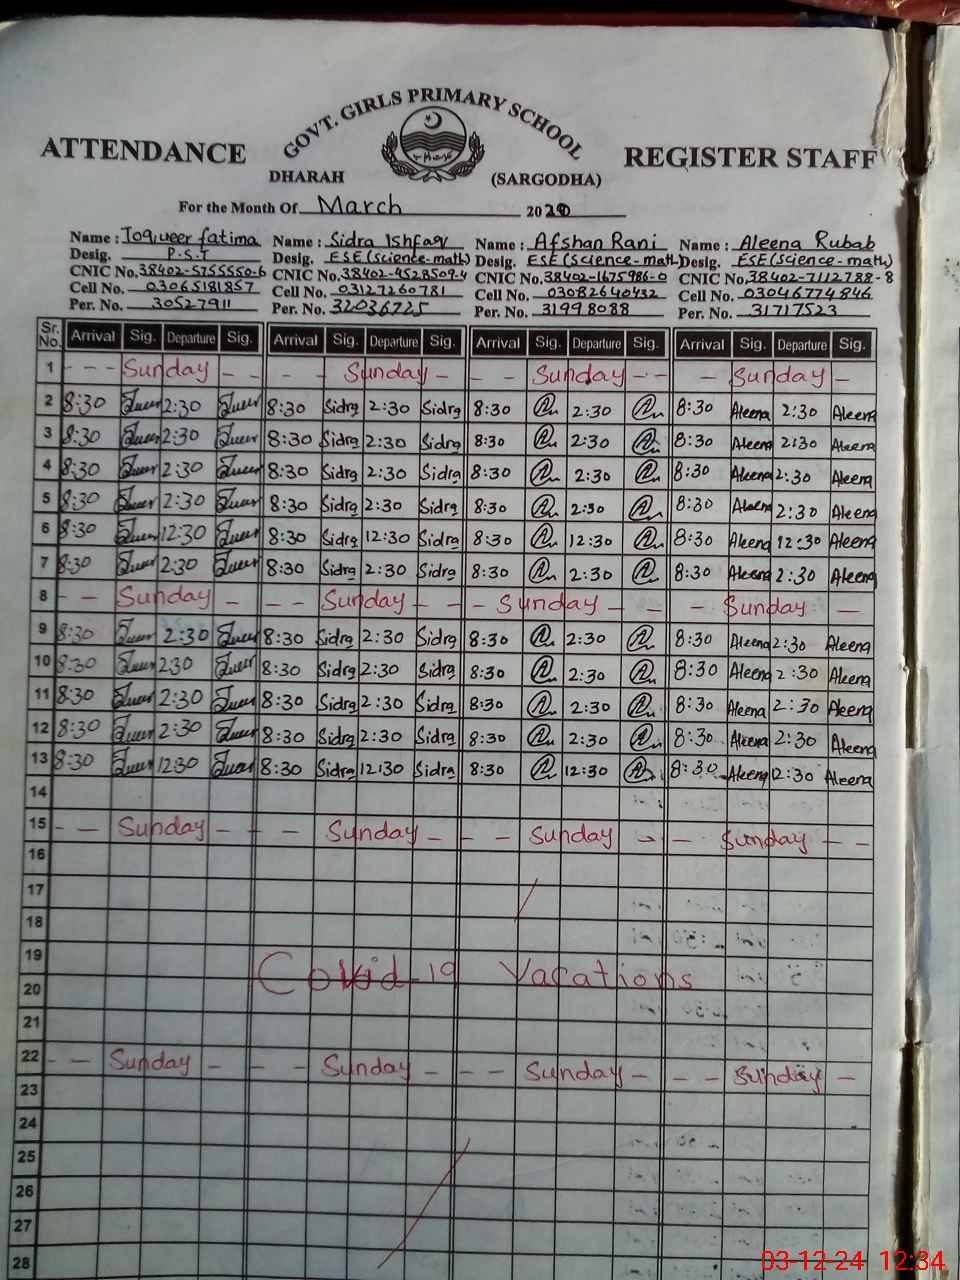 GOVT. GIRLS PRIMARY SCHOOL
ATTENDANCE REGISTER STAFF
DHARAH (SARGODHA)
For the Month Of March 2020
Name : Toqueer fatima Name : Sidra Ishfaq Name : Afshan Rani Name : Aleena Rubab
Desig. P.S.T Desig. ESE(science-math) Desig. ESE(science-math) Desig. ESE(science-math)
CNIC No. 38402-5755550-6 CNIC No. 38402-4528509-4 CNIC No. 38402-1675986-0 CNIC No. 38402-7112788-8
Cell No. 03065181857 Cell No. 03127260781 Cell No. 03082640432 Cell No. 03046774846
Per. No. 30527911 Per. No. 32036725 Per. No. 31998088 Per. No. 31717523
Sr. No. Arrival Sig. Departure Sig. Arrival Sig. Departure Sig. Arrival Sig. Departure Sig. Arrival Sig. Departure Sig.
1 - - - Sunday - - - - Sunday - - - Sunday - - - Sunday -
2 8:30 2:30 8:30 Sidra 2:30 Sidra 8:30 2:30 8:30 Aleena 2:30 Aleena
3 8:30 2:30 8:30 Sidra 2:30 Sidra 8:30 2:30 8:30 Aleena 2:30 Aleena
4 8:30 2:30 8:30 Sidra 2:30 Sidra 8:30 2:30 8:30 Aleena 2:30 Aleena
5 8:30 2:30 8:30 Sidra 2:30 Sidra 8:30 2:30 8:30 Aleena 2:30 Aleena
6 8:30 12:30 8:30 Sidra 12:30 Sidra 8:30 12:30 8:30 Aleena 12:30 Aleena
7 8:30 2:30 8:30 Sidra 2:30 Sidra 8:30 2:30 8:30 Aleena 2:30 Aleena
8 - - Sunday - - - Sunday - - - Sunday - - - Sunday -
9 8:30 2:30 8:30 Sidra 2:30 Sidra 8:30 2:30 8:30 Aleena 2:30 Aleena
10 8:30 2:30 8:30 Sidra 2:30 Sidra 8:30 2:30 8:30 Aleena 2:30 Aleena
11 8:30 2:30 8:30 Sidra 2:30 Sidra 8:30 2:30 8:30 Aleena 2:30 Aleena
12 8:30 2:30 8:30 Sidra 2:30 Sidra 8:30 2:30 8:30 Aleena 2:30 Aleena
13 8:30 12:30 8:30 Sidra 12:30 Sidra 8:30 12:30 8:30 Aleena 12:30 Aleena
14
15 - - Sunday - - - Sunday - - - Sunday - - Sunday - -
16
17
18
19
Covid-19 Vacations
20
21
22 - - Sunday - - - Sunday - - - Sunday - - - Sunday -
23
24
25
26
27
28
03-12-24 12:34